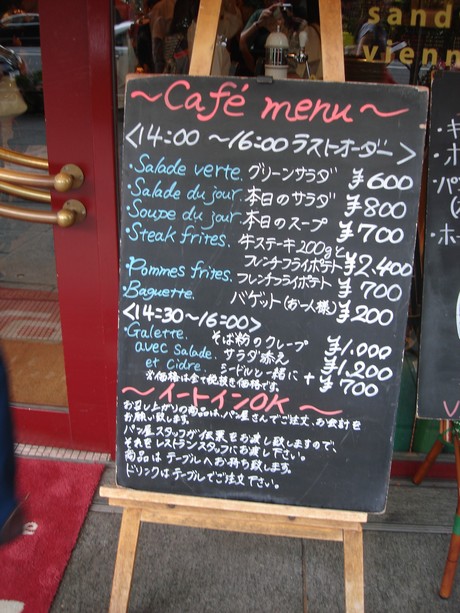 sand
vienn
~Café menu~
<14:00 ~16:00 ラストオーダー>
・Salade verte. グリーンサラダ ¥600
・Salade du jour. 本日のサラダ ¥800
・Soupe du jour. 本日のスープ ¥700
・Steak frites. 牛ステーキ200gと
フレンチフライポテト ¥2,400
・Pommes frites. フレンチフライポテト ¥700
・Baguette. バゲット(お一人様) ¥200
<14:30~16:00>
・Galette. そば粉のクレープ ¥1,000
avec Salade. サラダ添え ¥1,200
et Cidre. シードルと一緒に +¥700
※価格は全て税抜き価格です。
~イートインOK~
お召し上がりの商品は、パン屋さんでご注文、お会計を
お願い致します。
パン屋スタッフが伝票をお渡し致しますので、
それをレストランスタッフにお渡し下さい。
商品はテーブルへお持ち致します。
ドリンクはテーブルでご注文下さい。